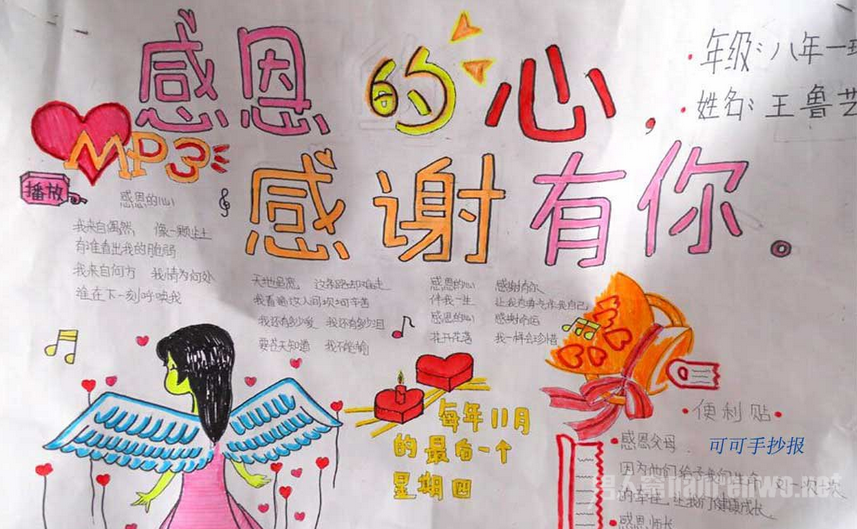 感恩的心，
感谢有你。
·年级：八年一班
·姓名：王鲁艺
MP3
播放
感恩的心
我来自偶然 像一颗尘土
有谁看出我的脆弱
我来自何方 我情归何处
谁在下一刻呼唤我
天地虽宽 这条路却难走
我看遍这人间坎坷辛苦
我还有多少爱 我还有多少泪
要苍天知道 我不认输
感恩的心 感谢有你
伴我一生 让我有勇气作我自己
感恩的心 感谢命运
花开花落 我一样会珍惜
每年11月
的最后一个
星期四
·便利贴
·感恩父母
可可手抄报
因为他们给予我们生命
的幸福，让我们健康成长
·感恩师长